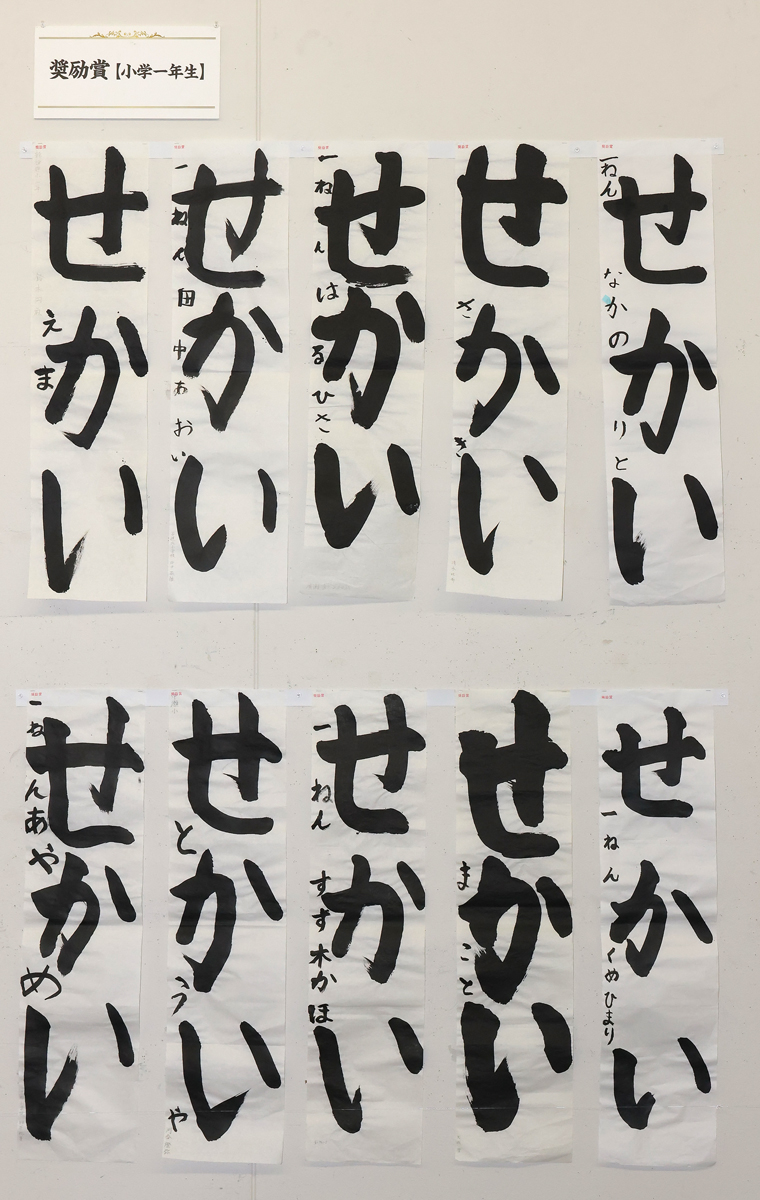 奨励賞【小学一年生】
せかい
一ねん なかの りと
せかい
さき
せかい
一ねん はるひさ
せかい
一ねん 田中あおい
せかい
えま
せかい
一ねん くめひまり
せかい
まこと
せかい
一ねん すず木かほ
せかい
とうや
せかい
一ねん あやめ